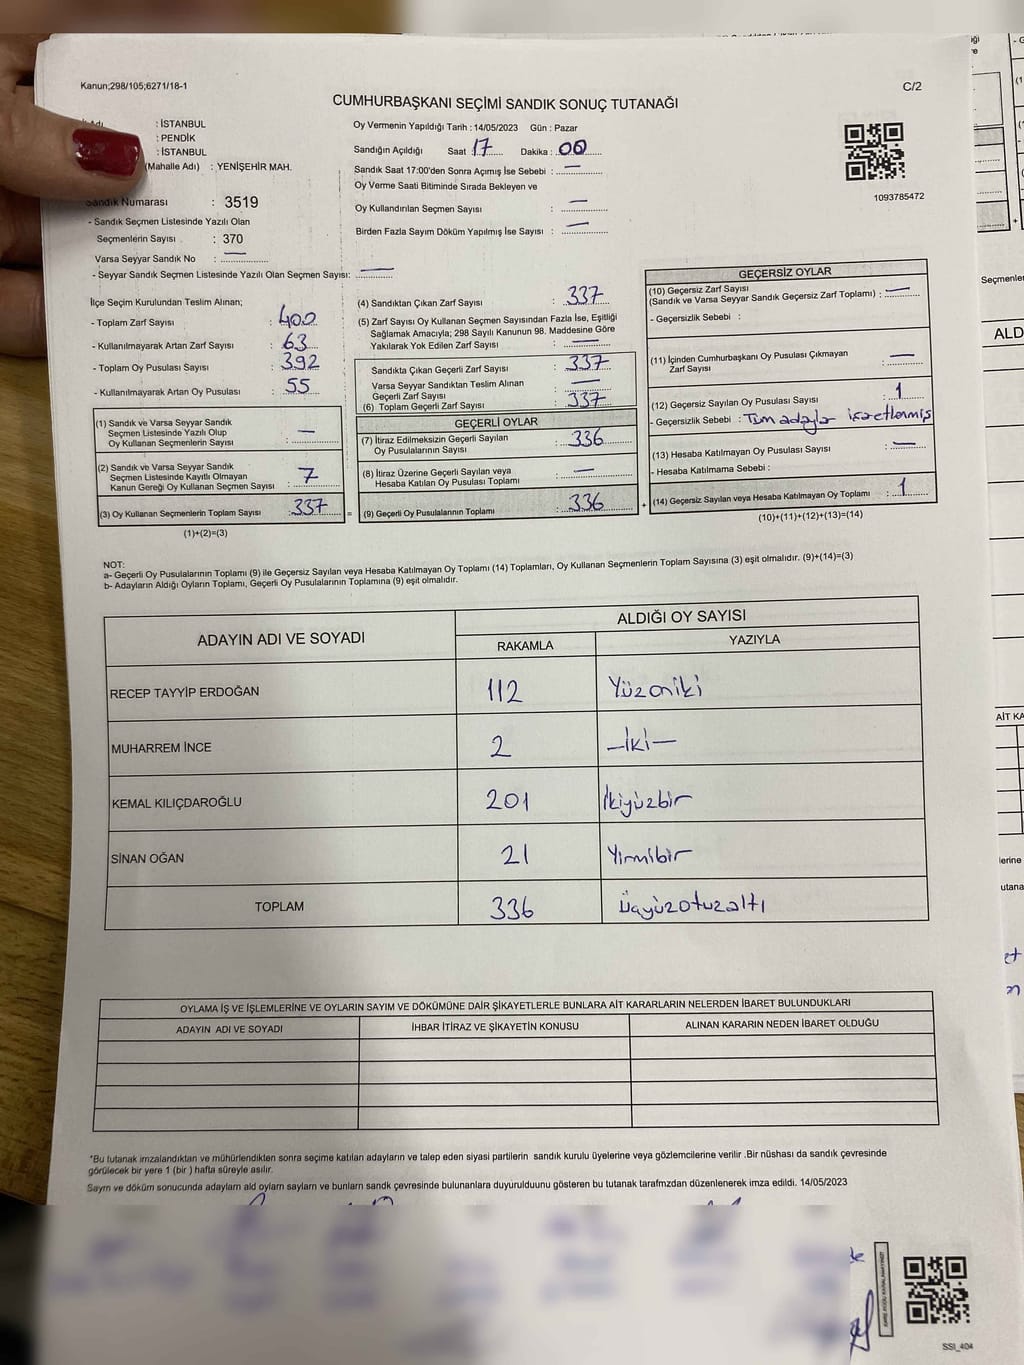 Kanun;298/105;6271/18-1
C/2
CUMHURBAŞKANI SEÇİMİ SANDIK SONUÇ TUTANAĞI
: İSTANBUL
: PENDİK
: İSTANBUL
(Mahalle Adı) : YENİŞEHİR MAH.
Sandık Numarası : 3519
- Sandık Seçmen Listesinde Yazılı Olan
Seçmenlerin Sayısı : 370
Varsa Seyyar Sandık No : —
- Seyyar Sandık Seçmen Listesinde Yazılı Olan Seçmen Sayısı: —
Oy Vermenin Yapıldığı Tarih : 14/05/2023 Gün : Pazar
Sandığın Açıldığı Saat 17 Dakika : 00
Sandık Saat 17:00'den Sonra Açımış İse Sebebi : —
Oy Verme Saati Bitiminde Sırada Bekleyen ve
Oy Kullandırılan Seçmen Sayısı : —
Birden Fazla Sayım Döküm Yapılmış İse Sayısı : —
1093785472
İlçe Seçim Kurulundan Teslim Alınan;
- Toplam Zarf Sayısı : 400
- Kullanılmayarak Artan Zarf Sayısı : 63
- Toplam Oy Pusulası Sayısı : 392
- Kullanılmayarak Artan Oy Pusulası : 55
(1) Sandık ve Varsa Seyyar Sandık
Seçmen Listesinde Yazılı Olup
Oy Kullanan Seçmenlerin Sayısı : —
(2) Sandık ve Varsa Seyyar Sandık
Seçmen Listesinde Kayıtlı Olmayan
Kanun Gereği Oy Kullanan Seçmen Sayısı : 7
(3) Oy Kullanan Seçmenlerin Toplam Sayısı : 337
(1)+(2)=(3)
(4) Sandıktan Çıkan Zarf Sayısı : 337
(5) Zarf Sayısı Oy Kullanan Seçmen Sayısından Fazla İse, Eşitliği
Sağlamak Amacıyla; 298 Sayılı Kanunun 98. Maddesine Göre
Yakılarak Yok Edilen Zarf Sayısı : —
Sandıkta Çıkan Geçerli Zarf Sayısı : 337
Varsa Seyyar Sandıktan Teslim Alınan
Geçerli Zarf Sayısı : —
(6) Toplam Geçerli Zarf Sayısı : 337
GEÇERLİ OYLAR
(7) İtiraz Edilmeksizin Geçerli Sayılan
Oy Pusulalarının Sayısı : 336
(8) İtiraz Üzerine Geçerli Sayılan veya
Hesaba Katılan Oy Pusulası Toplamı : —
= (9) Geçerli Oy Pusulalarının Toplamı : 336 +
GEÇERSİZ OYLAR
(10) Geçersiz Zarf Sayısı
(Sandık ve Varsa Seyyar Sandık Geçersiz Zarf Toplamı) : —
- Geçersizlik Sebebi :
(11) İçinden Cumhurbaşkanı Oy Pusulası Çıkmayan
Zarf Sayısı : —
(12) Geçersiz Sayılan Oy Pusulası Sayısı : 1
- Geçersizlik Sebebi : Tüm adaylar işaretlenmiş
(13) Hesaba Katılmayan Oy Pusulası Sayısı : —
- Hesaba Katılmama Sebebi :
(14) Geçersiz Sayılan veya Hesaba Katılmayan Oy Toplamı : 1
(10)+(11)+(12)+(13)=(14)
NOT:
a- Geçerli Oy Pusulalarının Toplamı (9) ile Geçersiz Sayılan veya Hesaba Katılmayan Oy Toplamı (14) Toplamları, Oy Kullanan Seçmenlerin Toplam Sayısına (3) eşit olmalıdır. (9)+(14)=(3)
b- Adayların Aldığı Oyların Toplamı, Geçerli Oy Pusulalarının Toplamına (9) eşit olmalıdır.
ADAYIN ADI VE SOYADI ALDIĞI OY SAYISI
RAKAMLA YAZIYLA
RECEP TAYYİP ERDOĞAN 112 Yüzoniki
MUHARREM İNCE 2 —İki—
KEMAL KILIÇDAROĞLU 201 İkiyüzbir
SİNAN OĞAN 21 Yirmibir
TOPLAM 336 Üçyüzotuzaltı
OYLAMA İŞ VE İŞLEMLERİNE VE OYLARIN SAYIM VE DÖKÜMÜNE DAİR ŞİKAYETLERLE BUNLARA AİT KARARLARIN NELERDEN İBARET BULUNDUKLARI
ADAYIN ADI VE SOYADI İHBAR İTİRAZ VE ŞİKAYETİN KONUSU ALINAN KARARIN NEDEN İBARET OLDUĞU
*Bu tutanak imzalandıktan ve mühürlendikten sonra seçime katılan adayların ve talep eden siyasi partilerin sandık kurulu üyelerine veya gözlemcilerine verilir .Bir nüshası da sandık çevresinde
görülecek bir yere 1 (bir ) hafta süreyle asılır.
Sayım ve döküm sonucunda adayların ald oyların sayları ve bunların sandk çevresinde bulunanlara duyurulduunu gösteren bu tutanak tarafmzdan düzenlenerek imza edildi. 14/05/2023
SSI_404
Seçmenler
ALD
AİT KA
lerine
utana